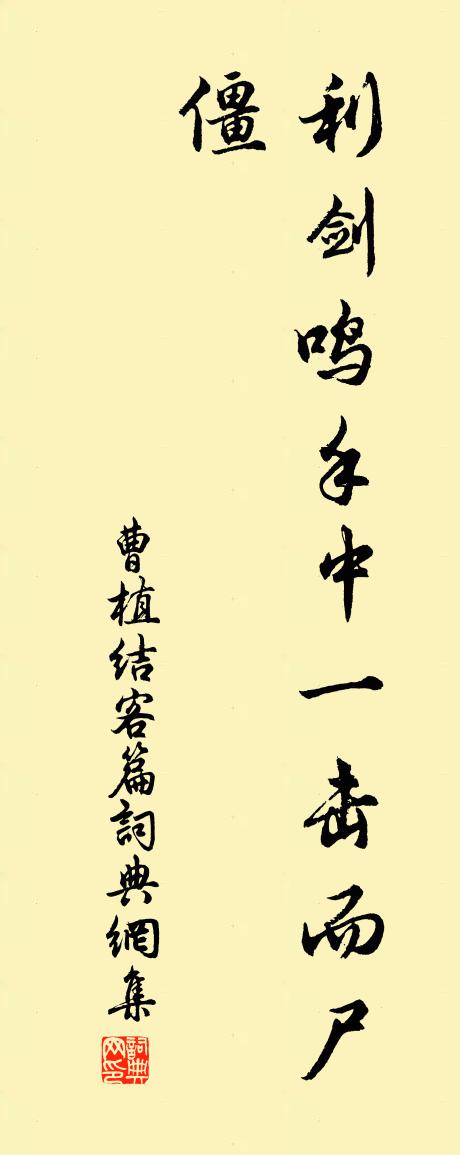 利剑鸣手中一击而尸
僵
曹植结客篇詞典網集
詞典
网印